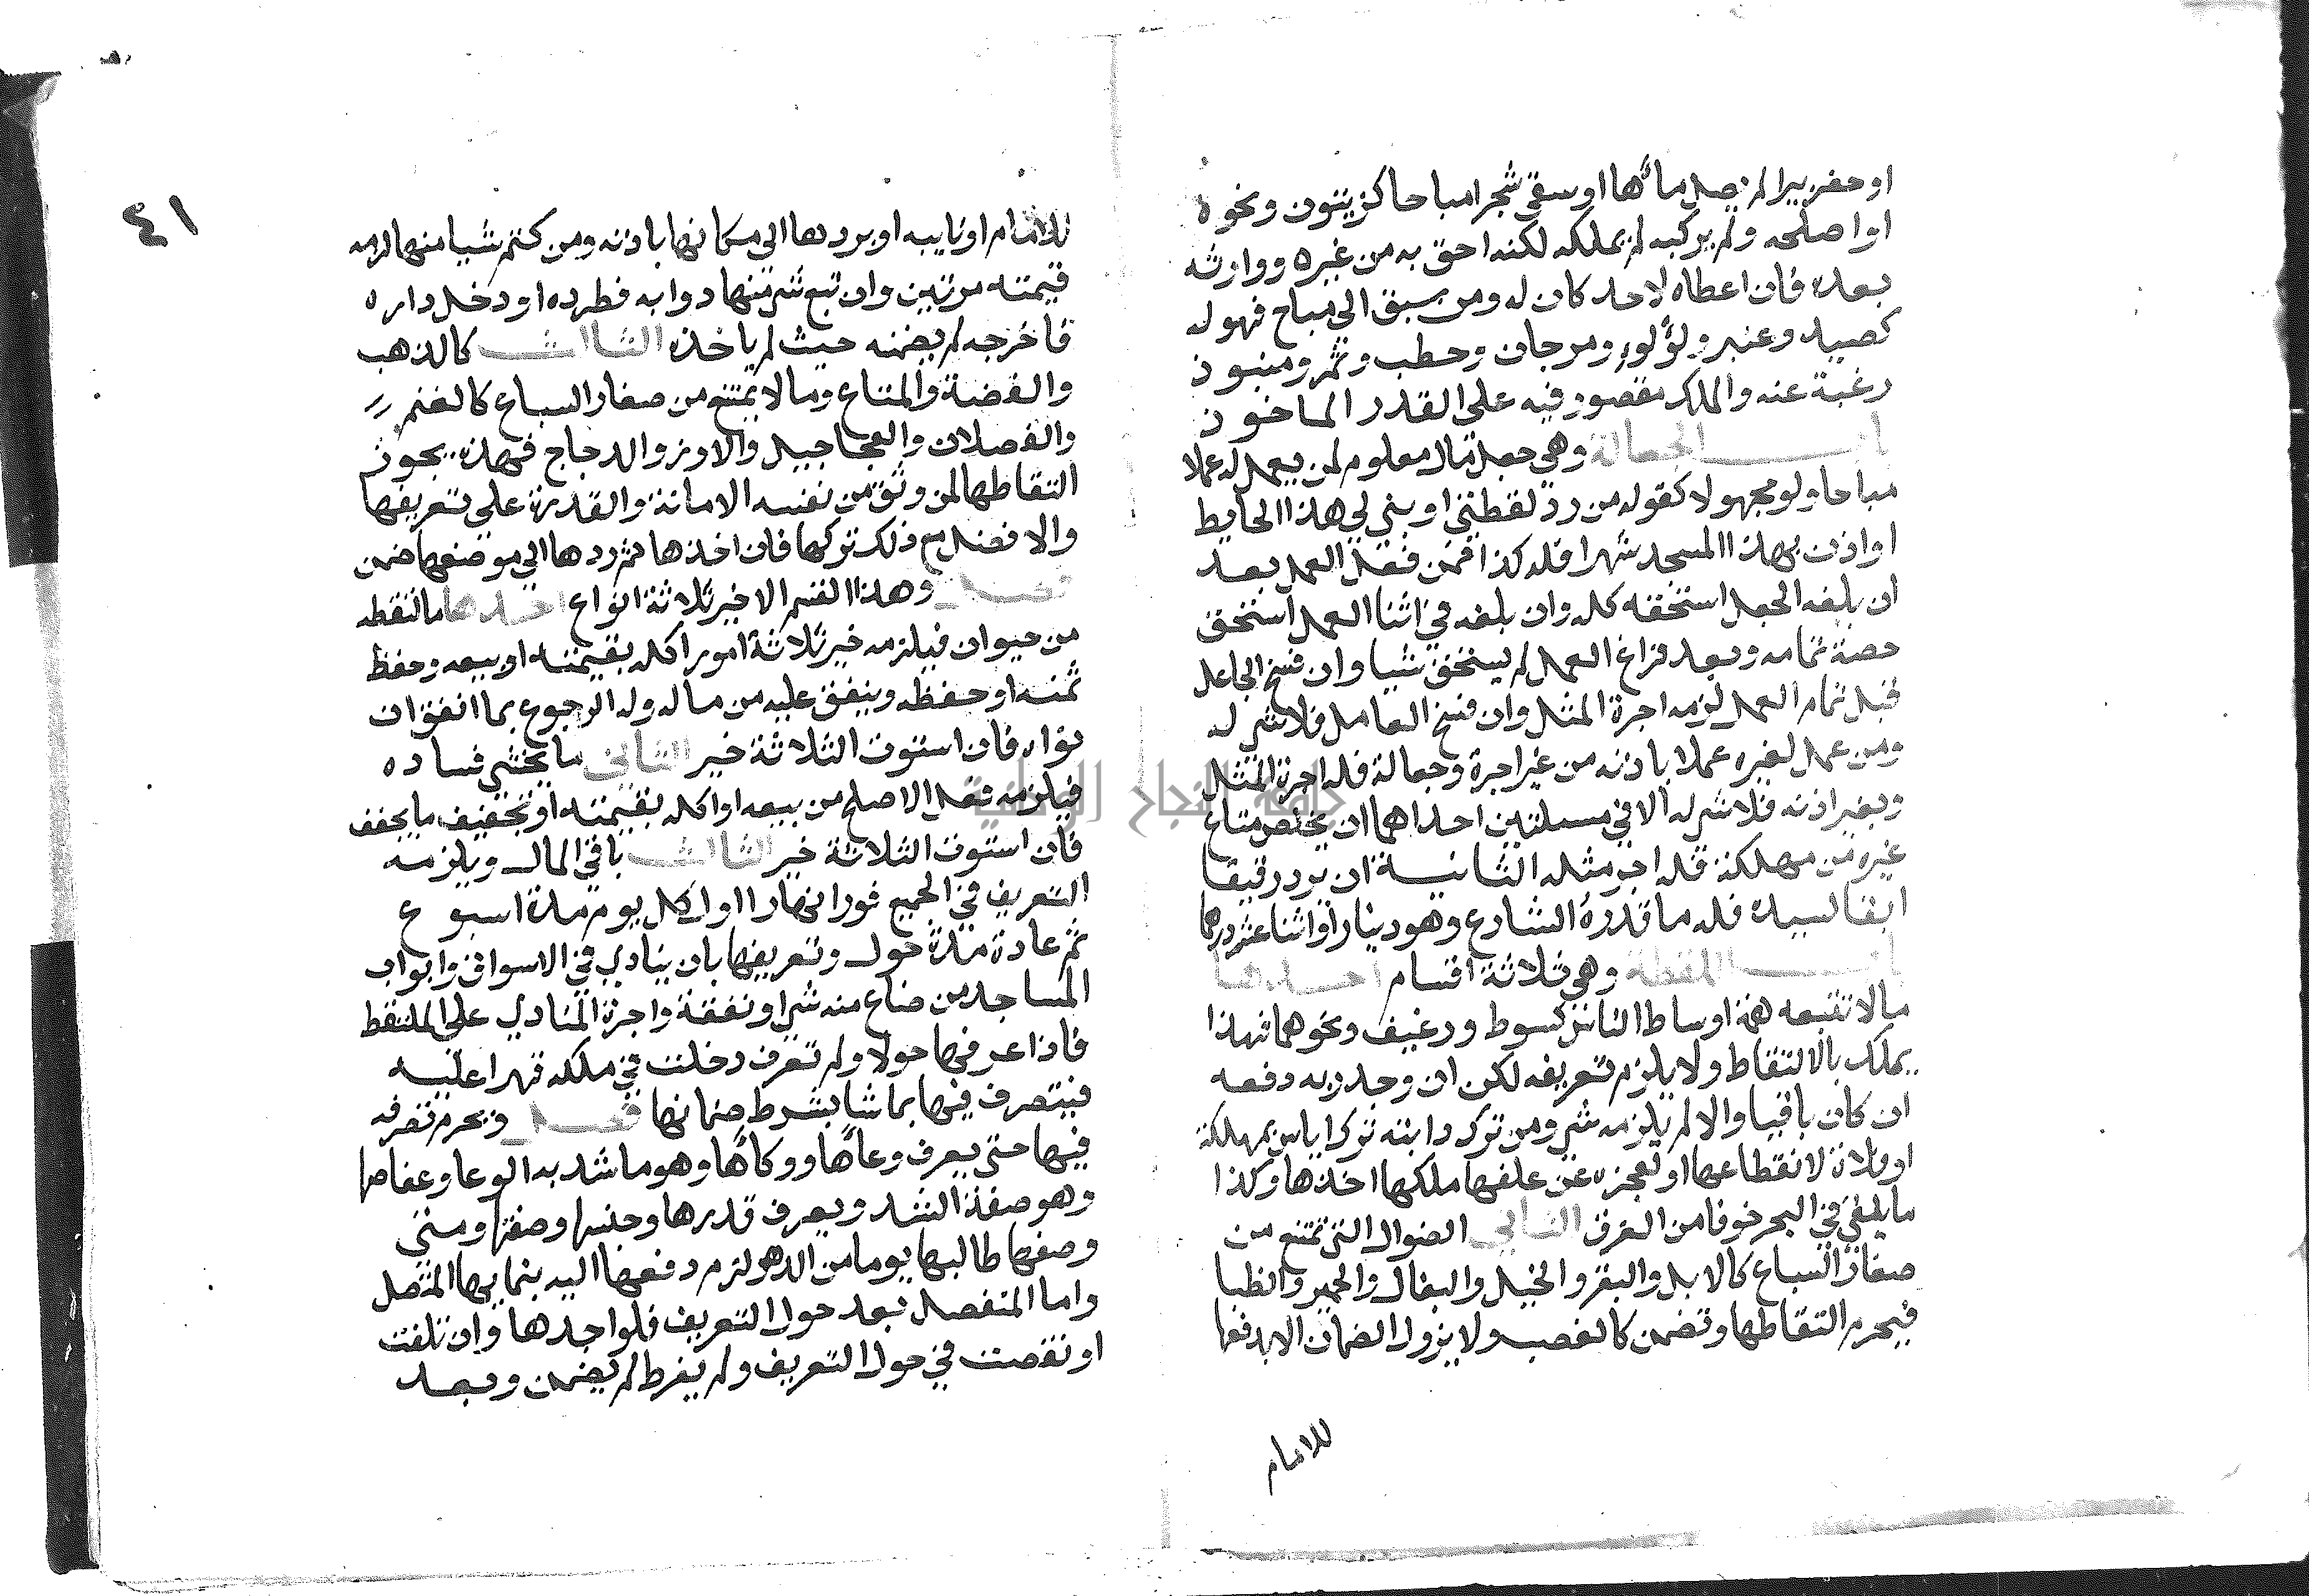 او حفر بيرا لم يصل مائها او سقى شجرا مباحا كزيتون ونحوه
او اصلحه ولم يركبه لم يملكه لكنه احق به من غيره ووارثه
بعده فان اعطاه لاحد كان له ومن سبق الى مباح فهو له
كصيد وعنبر ولؤلوء ومرجان وحطب وثمر ومنبوذ
رغبة عنه والملك مقصور فيه على القدر الماخوذ
باب الجعالة وهي جعل مال معلوم لمن يعمل له عملا
مباحا ولو مجهولا كقوله من رد لقطتي او بنى لي هذا الحايط
او اذن بهذا المسجد شهرا فله كذا فمن فعل العمل بعد
ان بلغه الجعل استحقه كله وان بلغه في اثنا العمل استحق
حصة تمامه وبعد فراغ العمل لم يستحق شيا وان فسخ الجاعل
قبل تمام العمل لزمه اجرة المثل وان فسخ العامل فلا شي له
ومن عمل لغيره عملا باذنه من غير اجرة وجعالة فله اجرة المثل
وبغير اذنه فلا شي له الا في مسئلتين احداهما ان يخلص متاع
غيره من مهلكة فله اجر مثله الثانية ان يرد رقيقا
ابقا لسيده فله ما قدره الشارع وهو دينار او اثنا عشر درهما
باب اللقطة وهي ثلاثة اقسام احدها
ما لا تتبعه همة اوساط الناس كسوط ورغيف ونحوهما فهذا
يملك بالالتقاط ولا يلزم تعريفه لكن ان وجد ربه دفعه
ان كان باقيا والا لم يلزمه شي ومن ترك دابته تركا ياس بمهلكة
او فلاة لانقطاعها او لعجزه عن علفها ملكها اخذها وكذا
ما يلقى في البحر خوفا من الغرق الثاني الضوال التي تمتنع من
صغار السباع كالابل والبقر والخيل والبغال والحمير والظبا
فيحرم التقاطها وتضمن كالغصب ولا يزول الضمان الا بدفعها
للامام
٤١
للامام او نايبه او يردها الى مكانها باذنه ومن كتم شيا منها لزمه
قيمته مرتين وان تبع شي منها دوابه فطرده او دخل داره
فاخرجه لم يضمنه حيث لم ياخذه الثالث كالذهب
والفضة والمتاع وما لا يمتنع من صغار السباع كالغنم
والفصلان والعجاجيل والاوز والدجاج فهذه يجوز
التقاطها لمن وثق من نفسه الامانة والقدرة على تعريفها
والافضل مع ذلك تركها فان اخذها ثم ردها الى موضعها ضمن
فصل وهذا القسم الاخير ثلاثة انواع احدها ما التقطه
من حيوان فيلزمه خير ثلاثة امور اكله بقيمته او بيعه وحفظ
ثمنه او حفظه وينفق عليه من ماله وله الرجوع بما انفق ان
نواه فان استوت الثلاثة خير الثاني ما يخشى فساده
فيلزمه فعل الاصلح من بيعه او اكله بقيمته او تجفيف ما يجفف
فان استوت الثلاثة خير الثالث باقي المال ويلزمه
التعريف في الجميع فورا نهارا اول كل يوم مدة اسبوع
ثم عادة مدة حول وتعريفها بان ينادي في الاسواق وابواب
المساجد من ضاع منه شي او نفقة واجرة المنادي على الملتقط
فاذا عرفها حولا ولم تعرف دخلت في ملكه قهرا عليه
فيتصرف فيها بما شا بشرط ضمانها فصل ويحرم تصرفه
فيها حتى يعرف وعاها ووكاها وهو ما شد به الوعا وعفاصها
وهو صفة الشد ويعرف قدرها وجنسها وصفتها ومتى
وصفها طالبها يوما من الدهر لزم دفعها اليه بنمايها المتصل
واما المنفصل بعد حول التعريف فلواجدها وان تلفت
او نقصت في حول التعريف ولم يفرط لم يضمن وبعد
جامعة النجاح الوطنية